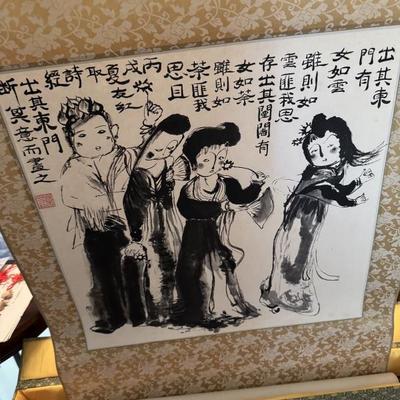 出其東
門有
女如雲
雖則如
雲匪我思
存出其闉闍有
女如荼
雖則如
荼匪我
思且
丙戌
夏友紅
取
詩
經
出其東門
斷其意而畫之